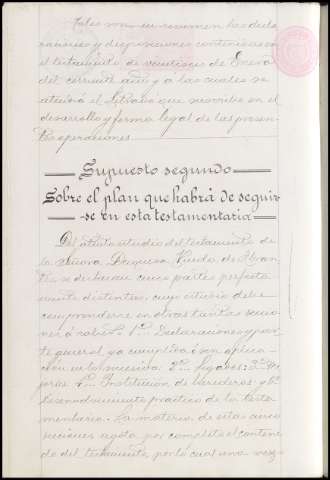 Tales son en resumen las decla-
raciones y disposiciones contenidas en
el testamento de veintiseis de Enero
del corriente año y á las cuales se
atendrá el Letrado que suscribe en el
desarrollo y forma legal de las presen-
tes operaciones
Supuesto segundo
Sobre el plan que habrá de seguir-
-se en esta testamentaria
Del atento estudio del testamento de
la Señora Duquesa Viuda de Abran-
tes se deducen cinco partes perfecta-
mente distintas, cuyo estudio debe
comprenderse en otras tantas seccio-
nes á saber: 1ª Declaraciones y par-
te general ya cumplida ó sin aplica-
ción en lo sucesivo 2ª Legados: 3ª Me-
joras 4ª Institucion de herederos y 5ª
Desenvolvimiento práctico de la testa-
mentaria. La materia de estas cinco
secciones agota por completo el conteni-
do del testamento, por lo cual una vez